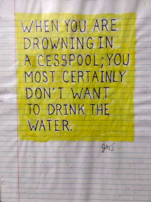 WHEN YOU ARE
DROWNING IN
A CESSPOOL; YOU
MOST CERTAINLY
DON'T WANT
TO DRINK THE
WATER.